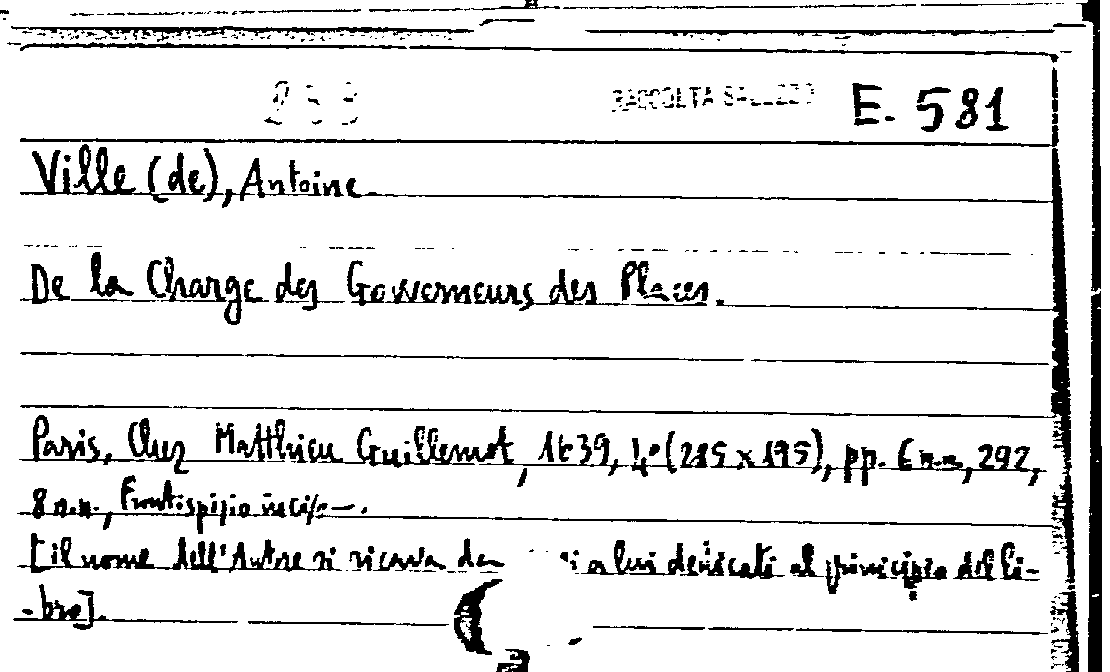 253 RACCOLTA E. 581
Ville (de), Antoine.
De la Charge des Gouverneurs des Places.
Paris, Chez Matthieu Guillemot, 1639, 4° (285 x 195), pp. 6 n.n., 292,
8 n.n., Frontispizio inciso.
[il nome dell'Autore si ricava da a lui dedicati al principio del li-
-bro].